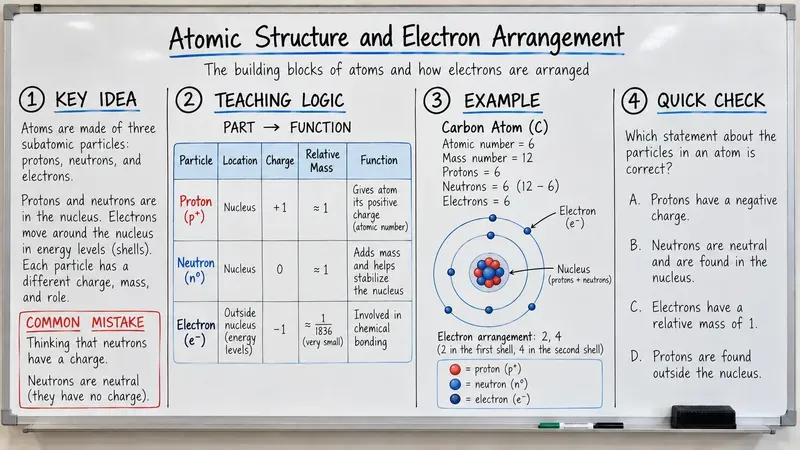 Atomic Structure and Electron Arrangement
The building blocks of atoms and how electrons are arranged
1 KEY IDEA
Atoms are made of three
subatomic particles:
protons, neutrons, and
electrons.
Protons and neutrons are
in the nucleus. Electrons
move around the nucleus
in energy levels (shells).
Each particle has a
different charge, mass,
and role.
COMMON MISTAKE
Thinking that neutrons
have a charge.
Neutrons are neutral
(they have no charge).
2 TEACHING LOGIC
PART → FUNCTION
Particle Location Charge Relative Mass Function
Proton (p⁺) Nucleus +1 ≈ 1 Gives atom its positive charge (atomic number)
Neutron (n⁰) Nucleus 0 ≈ 1 Adds mass and helps stabilize the nucleus
Electron (e⁻) Outside nucleus (energy levels) −1 ≈ 1/1836 (very small) Involved in chemical bonding
3 EXAMPLE
Carbon Atom (C)
Atomic number = 6
Mass number = 12
Protons = 6
Neutrons = 6 (12 − 6)
Electrons = 6
Electron
(e⁻)
Nucleus
(protons + neutrons)
Electron arrangement: 2, 4
(2 in the first shell, 4 in the second shell)
= proton (p⁺)
= neutron (n⁰)
= electron (e⁻)
4 QUICK CHECK
Which statement about the
particles in an atom is
correct?
A. Protons have a negative
charge.
B. Neutrons are neutral
and are found in the
nucleus.
C. Electrons have a
relative mass of 1.
D. Protons are found
outside the nucleus.